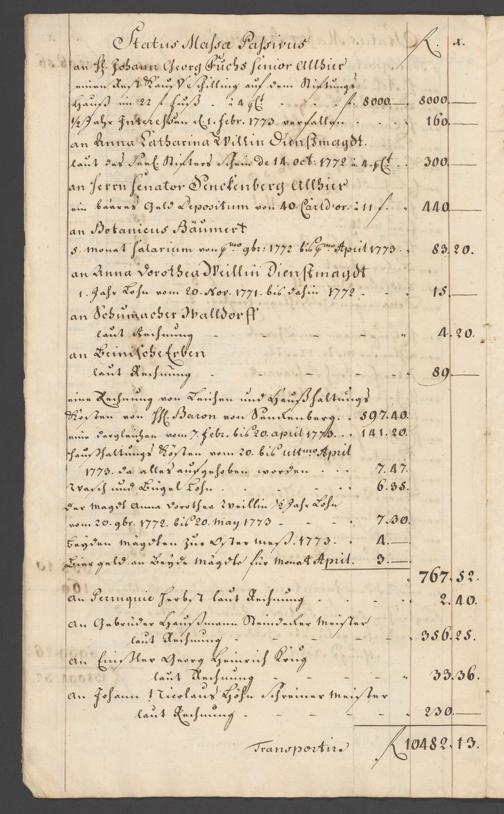 Status Massa Passivus f. x.
an H. Johann Georg Fuchs senior Allhier
einen Rest Kauf Schilling auf dem Stiftungs
Hauß im 22 f fuß . à 4 pCt . . . f. 8000.— 8000.—
½ Jahr Interessen d. 1. febr. 1773 verfallen . . . 160.—
an Anna Catharina Willin Dienstmagdt.
laut des Seel. Stifters Schein de 14. oct. 1772 à 4. pCt . 300.—
an Herrn Senator Senckenberg Allhier
ein baares Geld Depositum von 40. Carld'or à 11 f. . 440.—
an Botanicus Bäumert
5. monat Salarium von 9br. 1772 bis April 1773. . 83. 20.
an Anna Dorothea Weillin Dienstmagdt
1. Jahr Lohn vom 20. Nov. 1771. bis dahin 1772 - . . 15.—
an Schumacher Walldorff
laut Rechnung - - - - - 4. 20.
an Beinische Erben
laut Rechnung - - - - - 89.—
eine Rechnung von Leichen und Haußhaltungs
Kösten von H. Baron von Senckenberg . . 597. 40.
eine dergleichen vom 7. febr. bis 20. april 1773. . . 141. 20.
Haushaltungs Kösten vom 20. bis ultmo April
1773. da alles aufgehoben worden . . . 7. 47.
Wasch und Bügel Lohn . . . . . 6. 35.
der Magd Anna Dorothea Weillin ½ Jahr Lohn
vom 20. 9br. 1772. bis 20. may 1773 - - . 7. 30.
beyden mägdten zur Oster meß. 1773. . 4.—
Bier geld an Beyde mägdte für Monat April. 3.—
767. 52.
an Perruquie Herbst laut Rechnung . . . . 2. 40.
an Gebrüder Haußmann Steindecker meister
laut Rechnung - - - - - 356. 25.
an Georg Heinrich Krug
laut Rechnung - - - - 33. 36.
an Johann Nicolaus Höhn Schreiner meister
laut Rechnung . - - - - 230.—
Transportire f. 10482. 13.